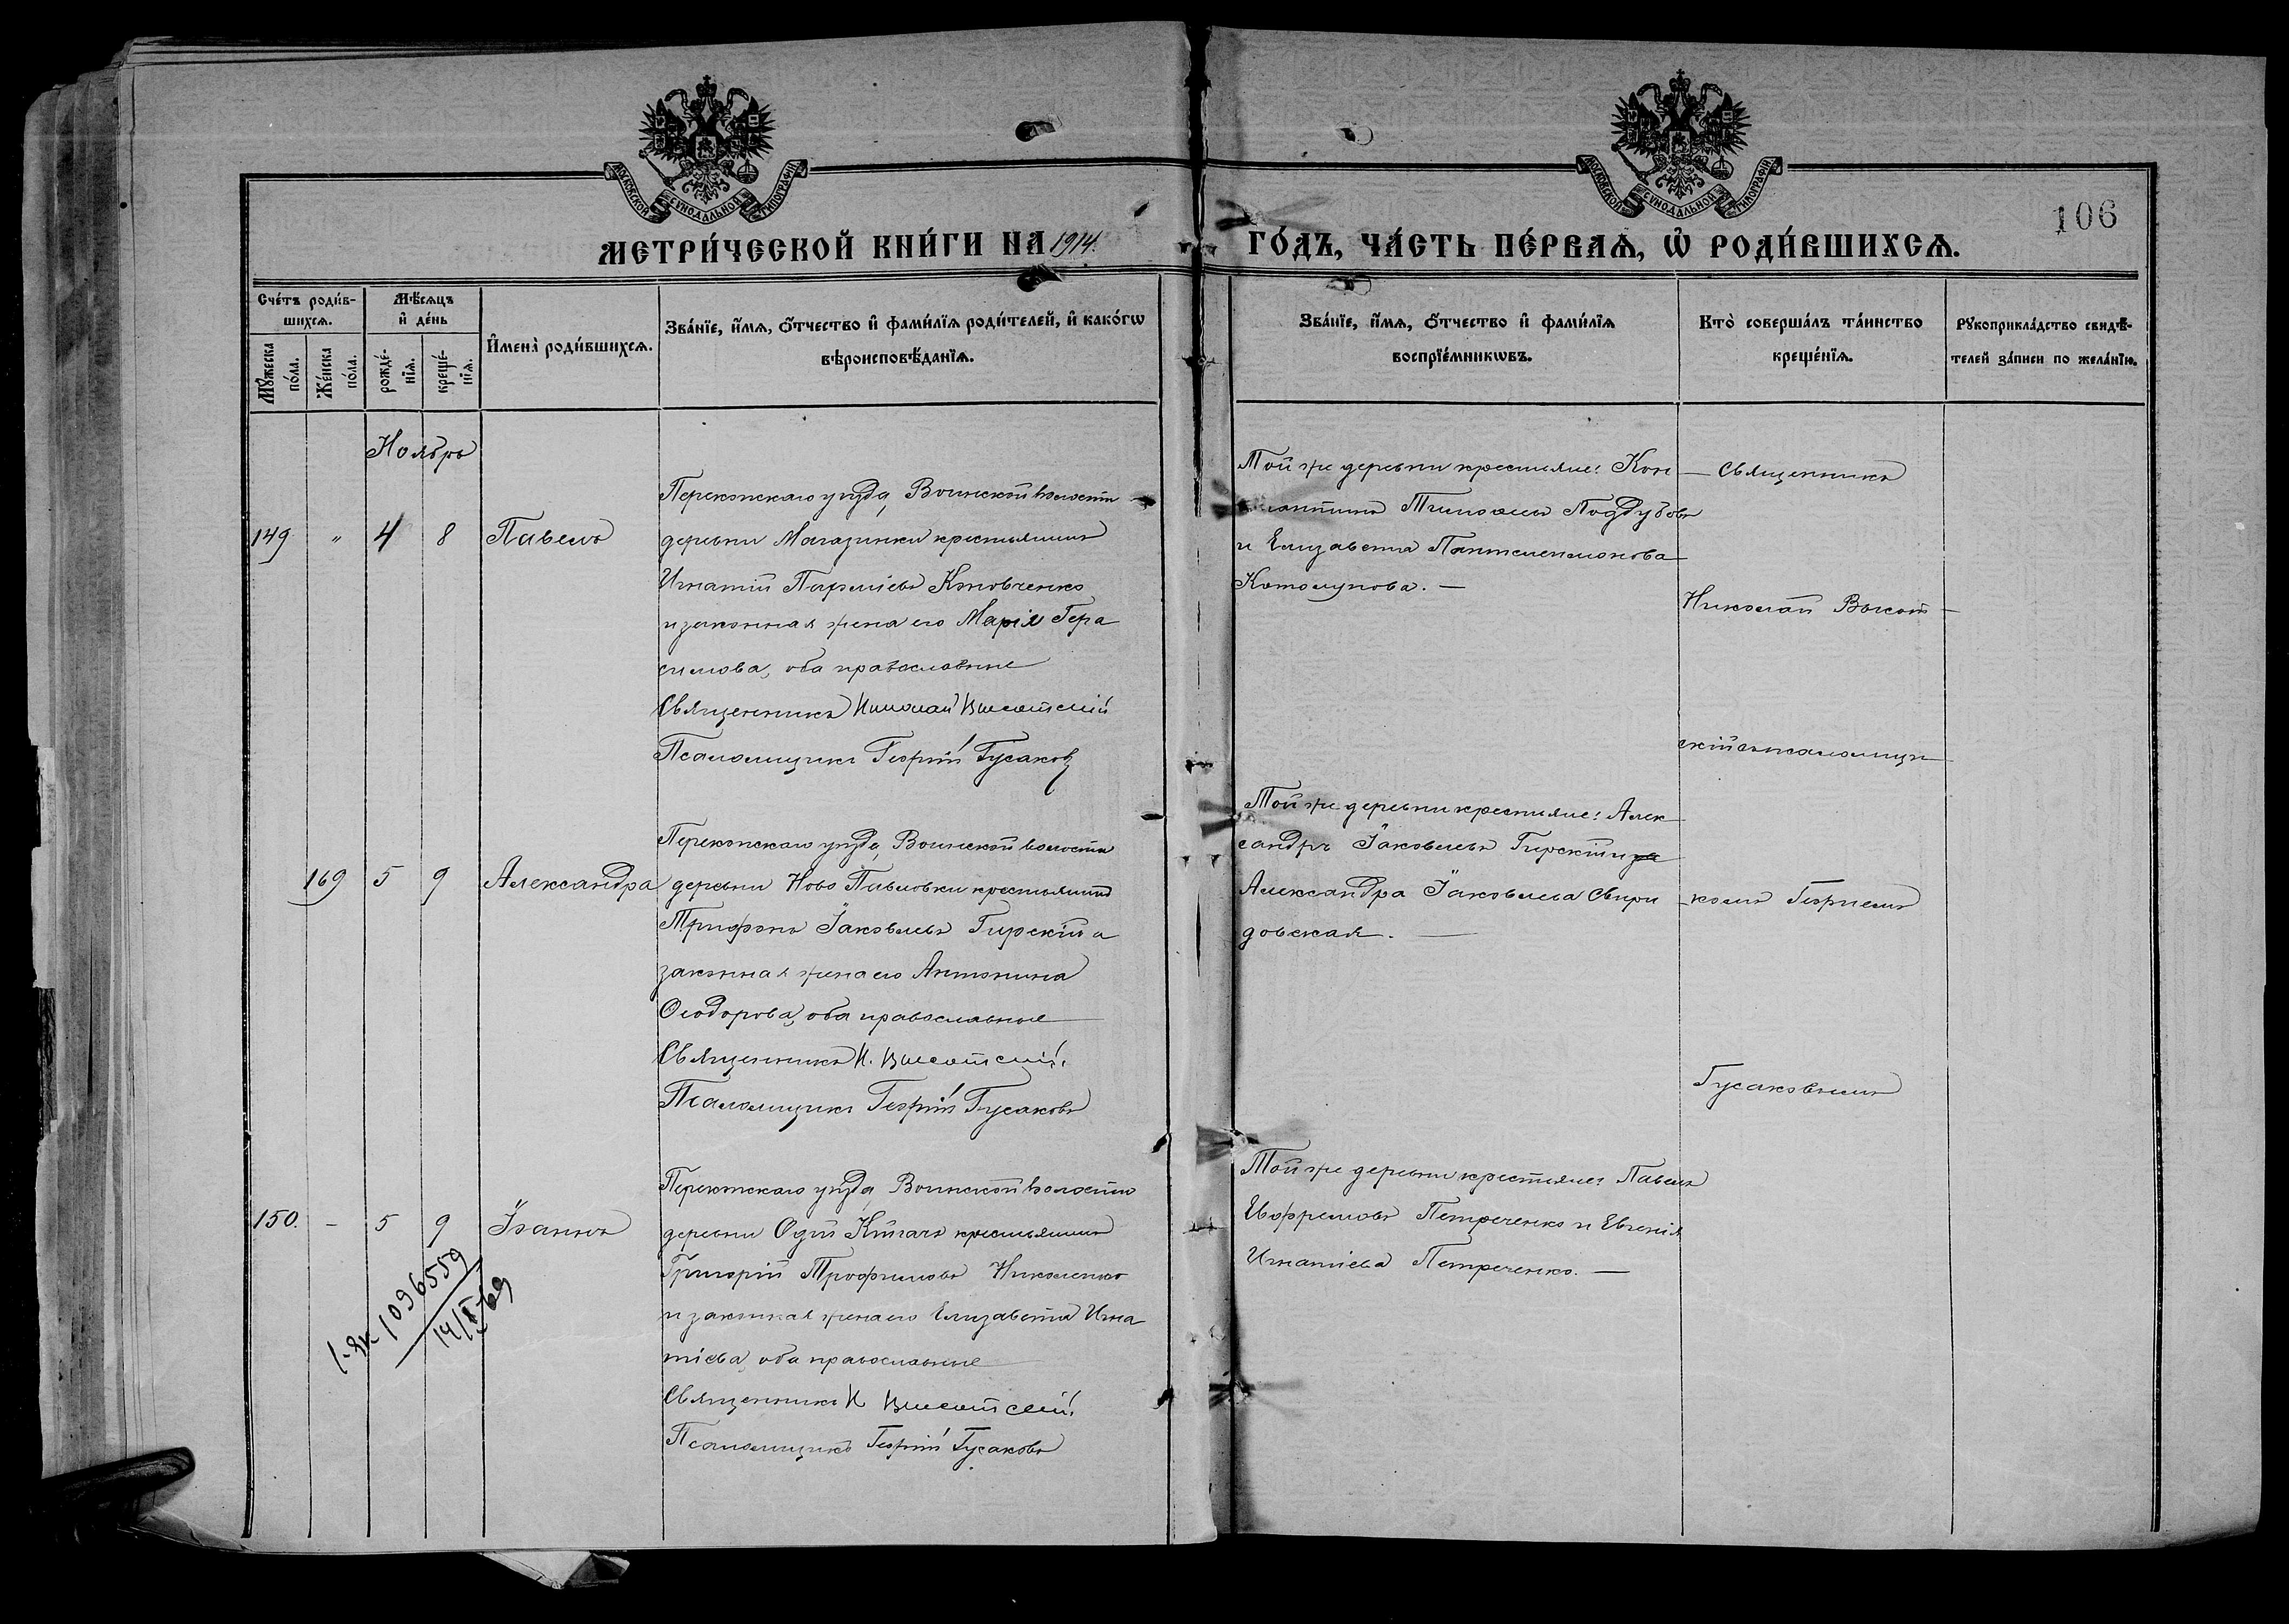 МОСКОВСКОЙ СѴНОДАЛЬНОЙ ТИПОГРАФІИ
МОСКОВСКОЙ СѴНОДАЛЬНОЙ ТИПОГРАФІИ
106
МЕТРИ́ЧЕСКОЙ КНИ́ГИ НА 1914. ГО́ДЪ, ЧА́СТЬ ПЕ́РВАѦ, Ѡ҆ РОДИ́ВШИХСѦ.
Сче́тъ роди́в-
шихсѧ.
Мꙋ́жеска
по́ла.
Же́нска
по́ла.
Мѣ́сѧцъ
и҆ де́нь
рожде́-
нїѧ.
креще́-
нїѧ.
И҆мена̀ роди́вшихсѧ.
Зва́нїе, и҆́мѧ, ѻ҆́тчество и҆ фами́лїѧ роди́телей, и҆ како́гѡ
вѣроисповѣ́данїѧ.
Зва́нїе, и҆́мѧ, ѻ҆́тчество и҆ фами́лїѧ
воспрїе́мникѡвъ.
Кто̀ соверша́лъ та́инство
креще́нїѧ.
Рꙋкоприкла́дство свидѣ́-
телей за́писи по жела́нїю.
Ноябрь
149 " 4 8 Павелъ
Перекопскаго уѣзда, Воинской волости
деревни Магазинки крестьянинъ
Игнатій
и законная жена его Марія Гера
симова, оба православные
Священникъ Николай Высотскій
Псаломщикъ Георгій Гусаковъ
Той же деревни крестьяне: Кон
стантинъ Поддубовъ
и Елизавета Пантелеимонова
Котолупова. —
169 5 9 Александра
Перекопскаго уѣзда, Воинской волости
деревни Ново Павловки крестьянинъ
Трифонъ Іаковлевъ Гирскій и
законная жена его Антонина
Ѳеодорова, оба православные
Священникъ Н. Высотскій.
Псаломщикъ Георгій Гусаковъ
Той же деревни крестьяне: Алек
сандръ Іаковлевъ Гирскій и
Александра Іаковлева Свири
довская. —
150. – 5 9 Іоаннъ
Перекопскаго уѣзда Воинской волости
деревни крестьянинъ
Григорій Трофимовъ Николенко
и законная жена его Елизавета Игна
тіева, оба православные
Священникъ Н Высотскій.
Псаломщикъ Георгій Гусаковъ
Той же деревни крестьяне: Павелъ
Евфремовъ Петреченко и Евгенія
Игнатіева Петреченко. —
Священникъ
Николай Высот
скій съ псаломщи
комъ Георгіемъ
Гусаковымъ
I-ЯК 1096559
14/I-69